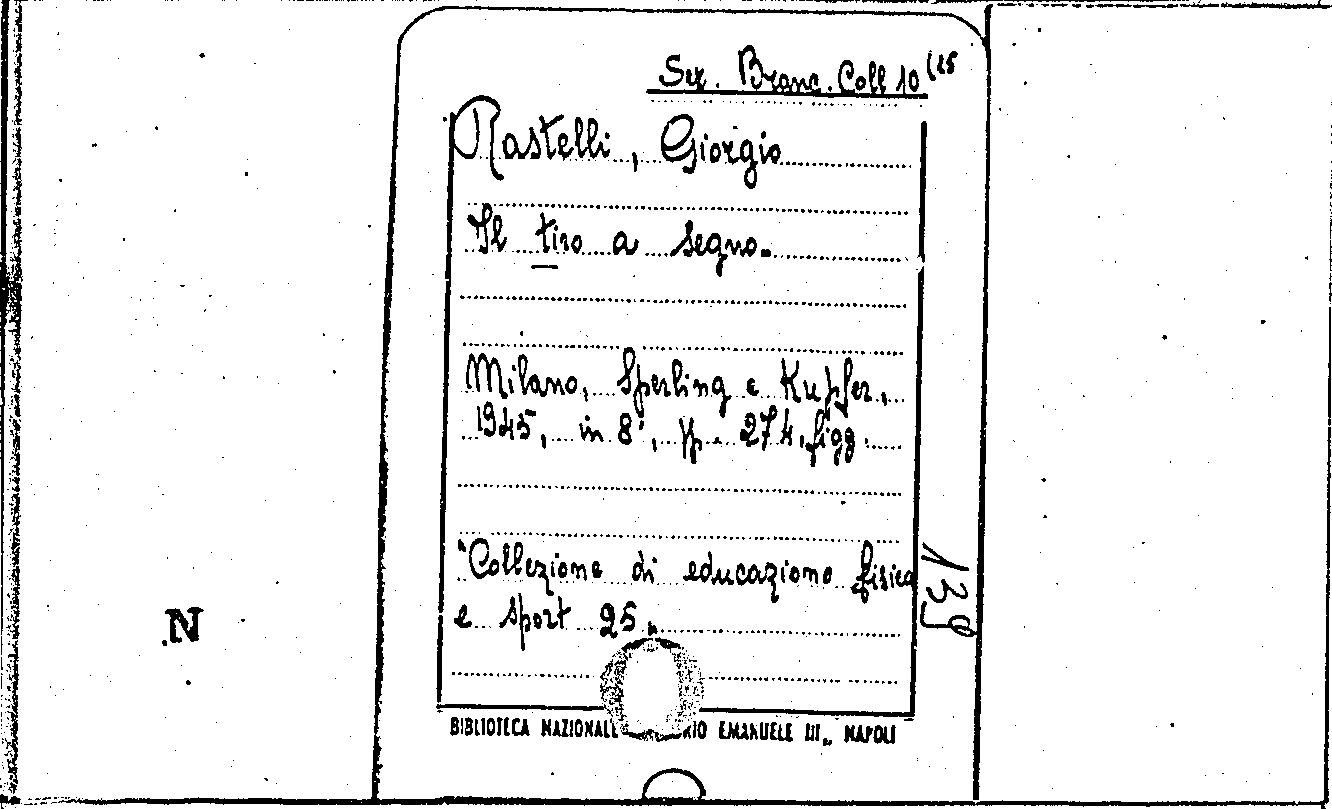 Sez. Branc. Coll 10 (25
Rastelli, Giorgio
Il tiro a segno.
Milano, Sperling e Kupfer,
1945, in 8°, pp. 274, figg.
"Collezione di educazione fisica
e sport 25"
139
N
BIBLIOTECA NAZIONALE RIO EMANUELE III„ NAPOLI